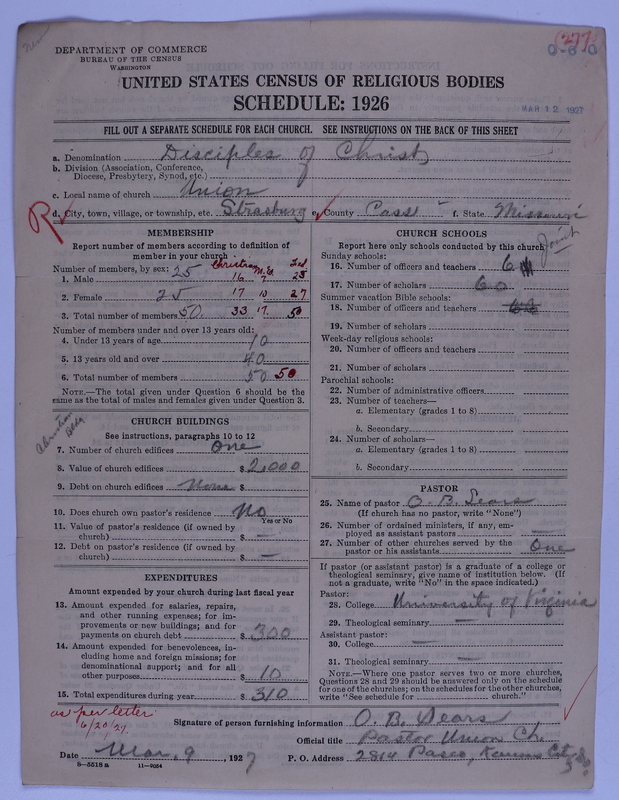 (277)
0-6 0
DEPARTMENT OF COMMERCE
BUREAU OF THE CENSUS
WASHINGTON
UNITED STATES CENSUS OF RELIGIOUS BODIES
SCHEDULE: 1926
MAR 12 1927
FILL OUT A SEPARATE SCHEDULE FOR EACH CHURCH. SEE INSTRUCTIONS ON THE BACK OF THIS SHEET
a. Denomination Disciples of Christ
b. Division (Association, Conference,
Diocese, Presbytery, Synod, etc.)
c. Local name of church Union
R d. City, town, village, or township, etc. Strasburg e. County Cass f. State Missouri
MEMBERSHIP
Report number of members according to definition of
member in your church
Number of members, by sex: Christian M.E. Fed
1. Male 25 16 7 23
2. Female 25 17 10 27
3. Total number of members 50. 33 17. 50
Number of members under and over 13 years old:
4. Under 13 years of age 10
5. 13 years old and over 40
6. Total number of members 50 50
NOTE.—The total given under Question 6 should be
the same as the total of males and females given under Question 3.
CHURCH BUILDINGS
See instructions, paragraphs 10 to 12
7. Number of church edifices One
8. Value of church edifices $2,000
9. Debt on church edifices None $
10. Does church own pastor's residence No
Yes or No
11. Value of pastor's residence (if owned by
church) $ —
12. Debt on pastor's residence (if owned by
church) $ —
EXPENDITURES
Amount expended by your church during last fiscal year
13. Amount expended for salaries, repairs,
and other running expenses; for im-
provements or new buildings; and for
payments on church debt $300
14. Amount expended for benevolences, in-
cluding home and foreign missions; for
denominational support; and for all
other purposes $10
15. Total expenditures during year $310
CHURCH SCHOOLS
Report here only schools conducted by this church
Joint
Sunday schools:
16. Number of officers and teachers 6
17. Number of scholars 60
Summer vacation Bible schools:
18. Number of officers and teachers
19. Number of scholars
Week-day religious schools:
20. Number of officers and teachers
21. Number of scholars
Parochial schools:
22. Number of administrative officers
23. Number of teachers—
a. Elementary (grades 1 to 8)
b. Secondary
24. Number of scholars—
a. Elementary (grades 1 to 8)
b. Secondary
PASTOR
25. Name of pastor O. B. Sears
(If church has no pastor, write "None")
26. Number of ordained ministers, if any, em-
ployed as assistant pastors —
27. Number of other churches served by the
pastor or his assistants One
If pastor (or assistant pastor) is a graduate of a college or
theological seminary, give name of institution below. (If
not a graduate, write "No" in the space indicated.)
Pastor:
28. College University of Virginia
29. Theological seminary —
Assistant pastor:
30. College —
31. Theological seminary —
NOTE.—Where one pastor serves two or more churches,
Questions 28 and 29 should be answered only on the schedule
for one of the churches; on the schedules for the other churches,
write "See schedule for church."
as per letter
6/20/27.
Signature of person furnishing information O. B. Sears
Official title Pastor Union Ch.
Date Mar. 9, 1927 P. O. Address 2814 Paseo, Kansas City Mo.
8-5518 a 11-9034